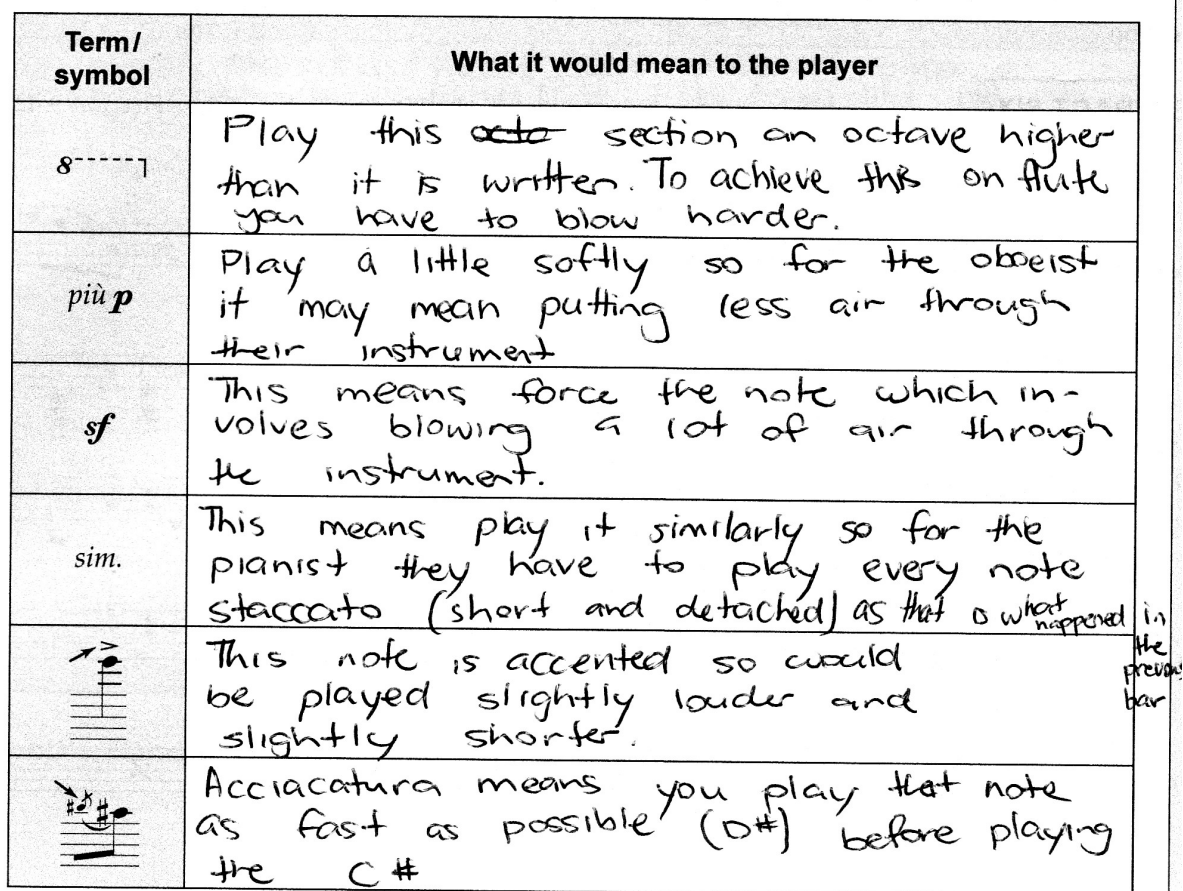 Term/
symbol
What it would mean to the player
8
Play this octo section an octave higher
than it is written. To achieve this on flute
you have to blow harder.
più p
Play a little softly so for the oboeist
it may mean putting less air through
their instrument
sf
This means force the note which in-
volves blowing a lot of air through
the instrument.
sim.
This means play it similarly so for the
pianist they have to play every note
staccato (short and detached) as that is what
happened in
the
previous
bar
This note is accented so would
be played slightly louder and
slightly shorter.
Acciacatura means you play that note
as fast as possible (D#) before playing
the C#